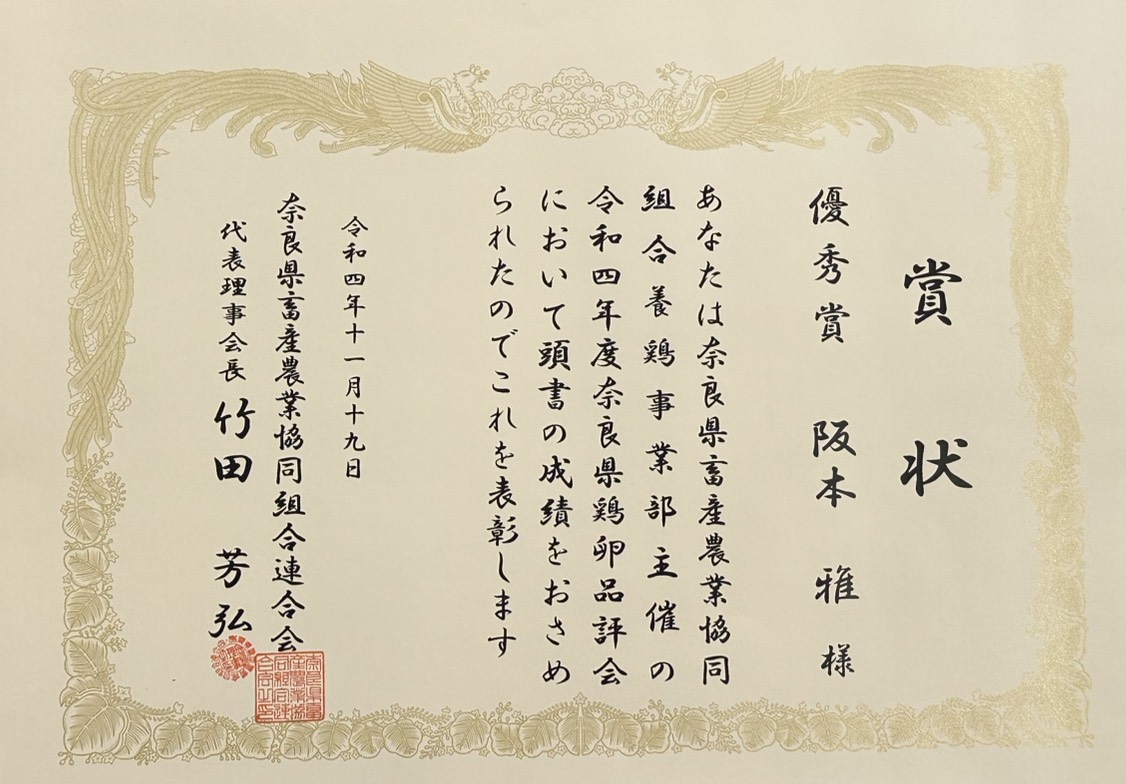 賞状
優秀賞 阪本 雅 様
あなたは奈良県畜産農業協同
組合養鶏事業部主催の
令和四年度奈良県鶏卵品評会
において頭書の成績をおさめ
られたのでこれを表彰します
令和四年十一月十九日
奈良県畜産農業協同組合連合会
代表理事会長 竹田 芳弘